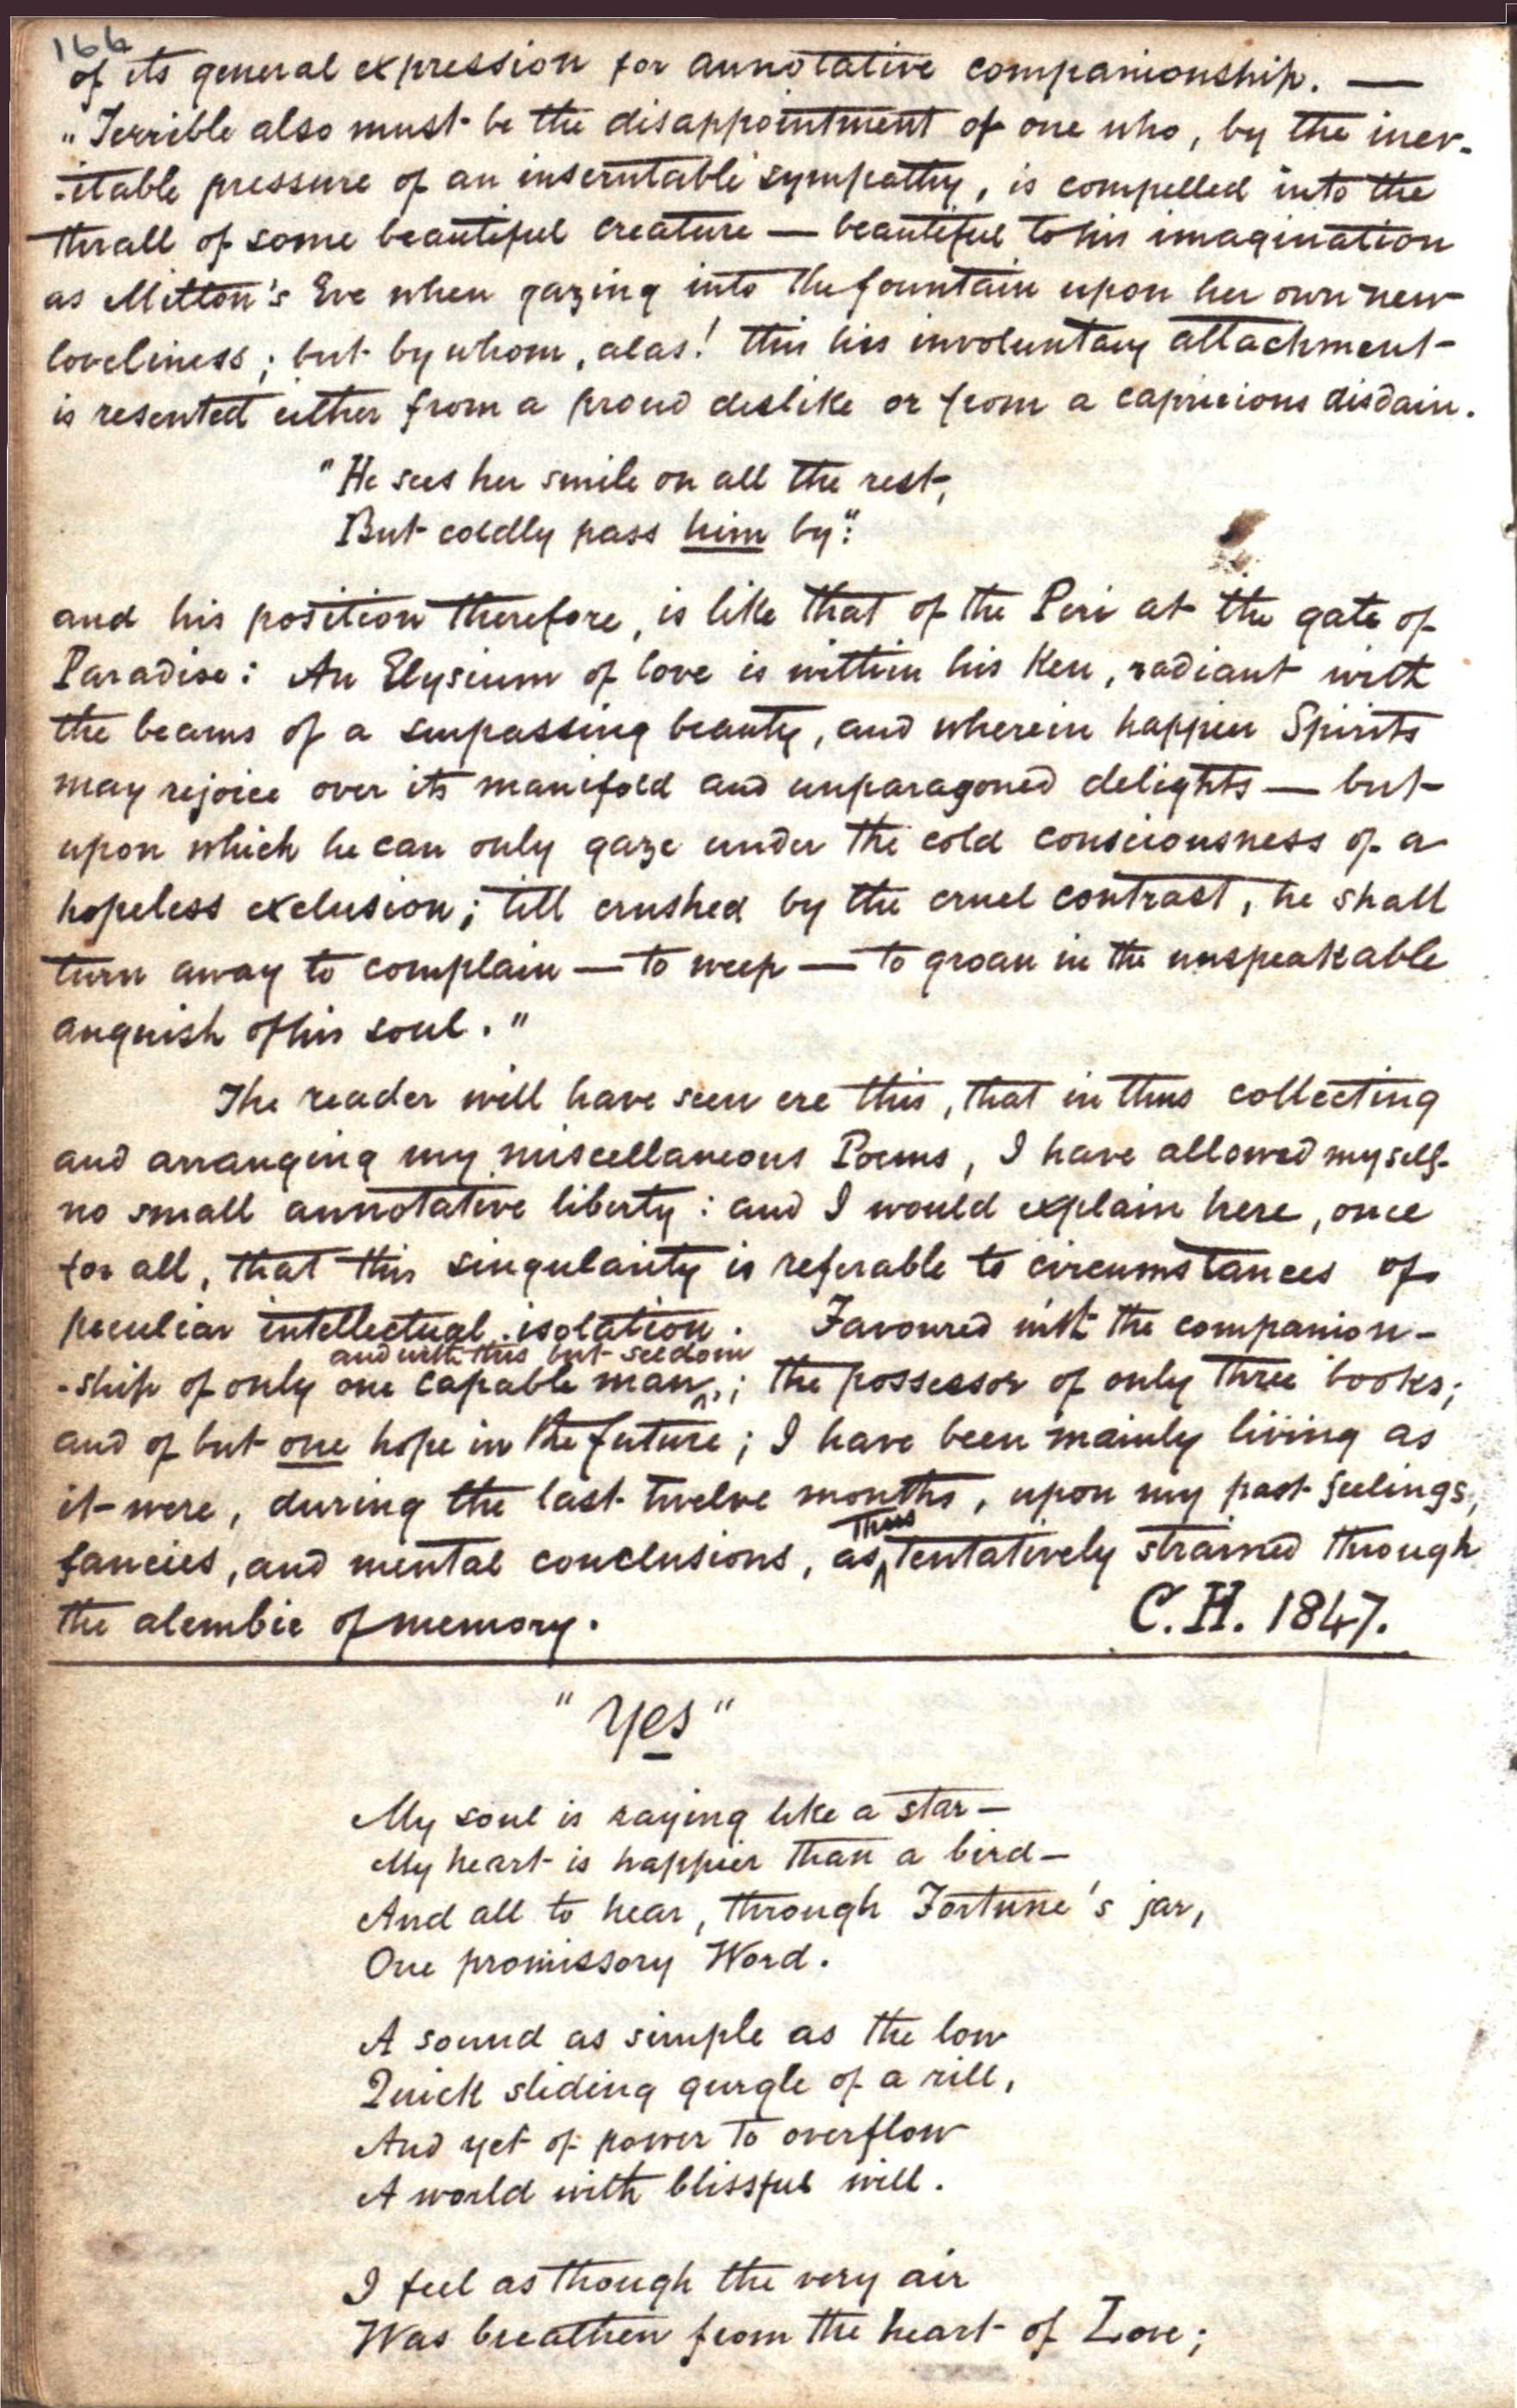 166
of its general expression for annotative companionship. —
"Terrible also must be the disappointment of one who, by the inev-
-itable pressure of an inscrutable sympathy, is compelled into the
thrall of some beautiful creature — beautiful to his imagination
as Milton's Eve when gazing into the fountain upon her own new
loveliness; but by whom, alas! this his involuntary attachment
is resented either from a proud dislike or from a capricious disdain.
"He sees her smile on all the rest,
But coldly pass him by":
and his position therefore, is like that of the Peri at the gate of
Paradise: An Elysium of love is within his ken, radiant with
the beams of a surpassing beauty, and wherein happier Spirits
may rejoice over its manifold and unparagoned delights — but
upon which he can only gaze under the cold consciousness of a
hopeless exclusion; till crushed by the cruel contrast, he shall
turn away to complain — to weep — to groan in the unspeakable
anguish of his soul."
The reader will have seen ere this, that in thus collecting
and arranging my miscellaneous Poems, I have allowed myself
no small annotative liberty: and I would explain here, once
for all, that this singularity is referable to circumstances of
peculiar intellectual isolation. Favoured with the companion-
and with this but seldom
-ship of only one capable man,; the possessor of only three books;
and of but one hope in the future; I have been mainly living as
it were, during the last twelve months, upon my past feelings,
thus
fancies, and mental conclusions, as tentatively strained through
the alembic of memory. C.H. 1847.
"Yes"
My soul is raying like a star —
My heart is happier than a bird —
And all to hear, through Fortune's jar,
One promissory Word.
A sound as simple as the low
Quick sliding gurgle of a rill,
And yet of power to overflow
A world with blissful will.
I feel as though the very air
Was breathen from the heart of Love;